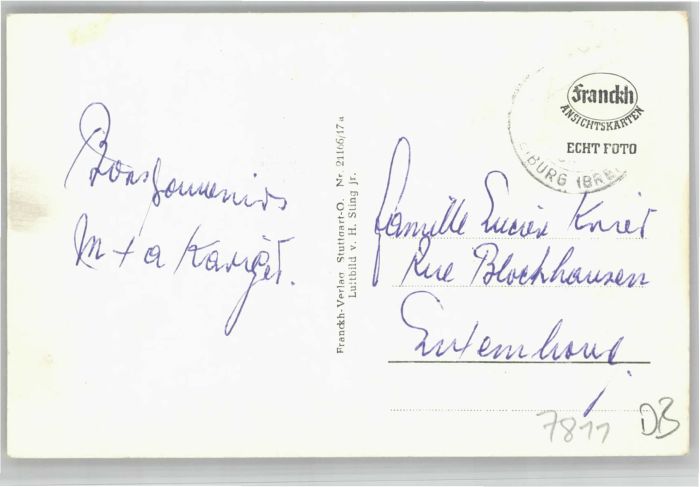 Bons souvenirs
M + a Kariger.
Franckh-Verlag Stuttgart-O. Nr. 21166/17a
Luftbild v. H. Sting jr.
Franckh
ANSICHTSKARTEN
ECHT FOTO
BURG (BR
Famille Lucien Krier
Rue Blochhausen
Luxembourg
7811 DB